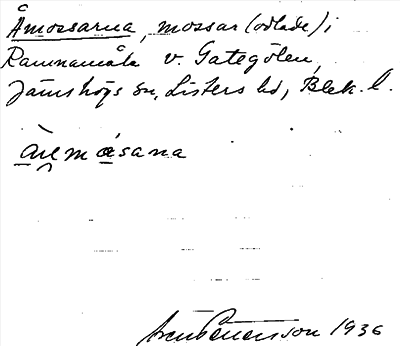 Åmossarna, mossar (odlade) i
Ramnamåla v. Gategölen,
Jämshögs sn, Listers hd, Blek. l.
åemåsana
Petersson 1936